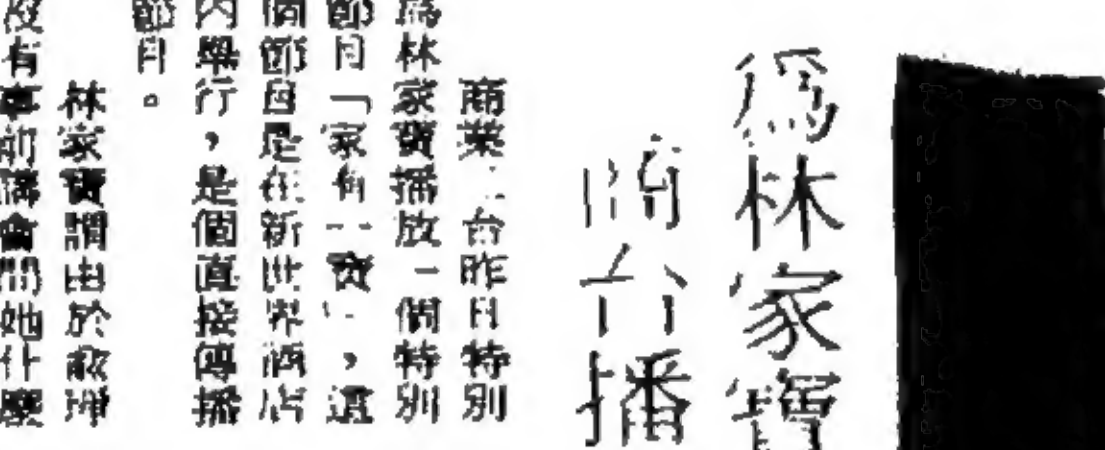 爲林家寶
商台播
商業二台昨日特別
爲林家寶播放一個特別
節目「家有一寶」,這
個節目是在新世界酒店
內舉行,是個直接傳播
節目。
林家寶謂由於敢琤
没有事前講會問她什麼